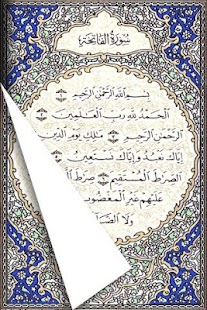 سُورَةُ الْفَاتِحَةِ
بِسْمِ اللَّهِ الرَّحْمَٰنِ الرَّحِيمِ ۝
الْحَمْدُ لِلَّهِ رَبِّ الْعَالَمِينَ ۝
الرَّحْمَٰنِ الرَّحِيمِ ۝ مَالِكِ يَوْمِ الدِّينِ
إِيَّاكَ نَعْبُدُ وَإِيَّاكَ نَسْتَعِينُ
الصِّرَاطَ الْمُسْتَقِيمَ ۝ صِرَاطَ
عَلَيْهِمْ غَيْرِ الْمَغْضُوبِ
وَلَا